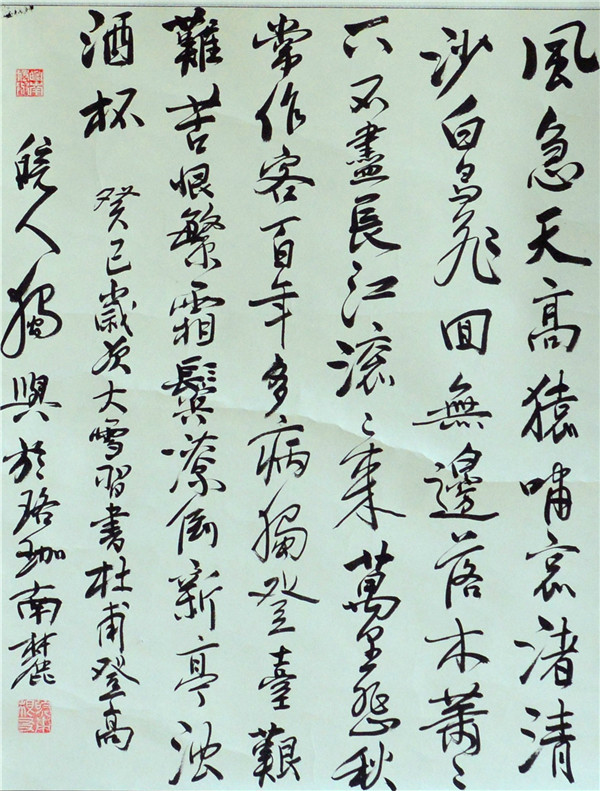 風急天高猿嘯哀渚清
沙白鳥飛回無邊落木蕭〻
下不盡長江滾〻來萬里悲秋
常作客百年多病獨登臺艱
難苦恨繁霜鬢潦倒新亭濁
酒杯 癸巳歲次大雪習書杜甫登高
皖人獨與於珞珈南麓